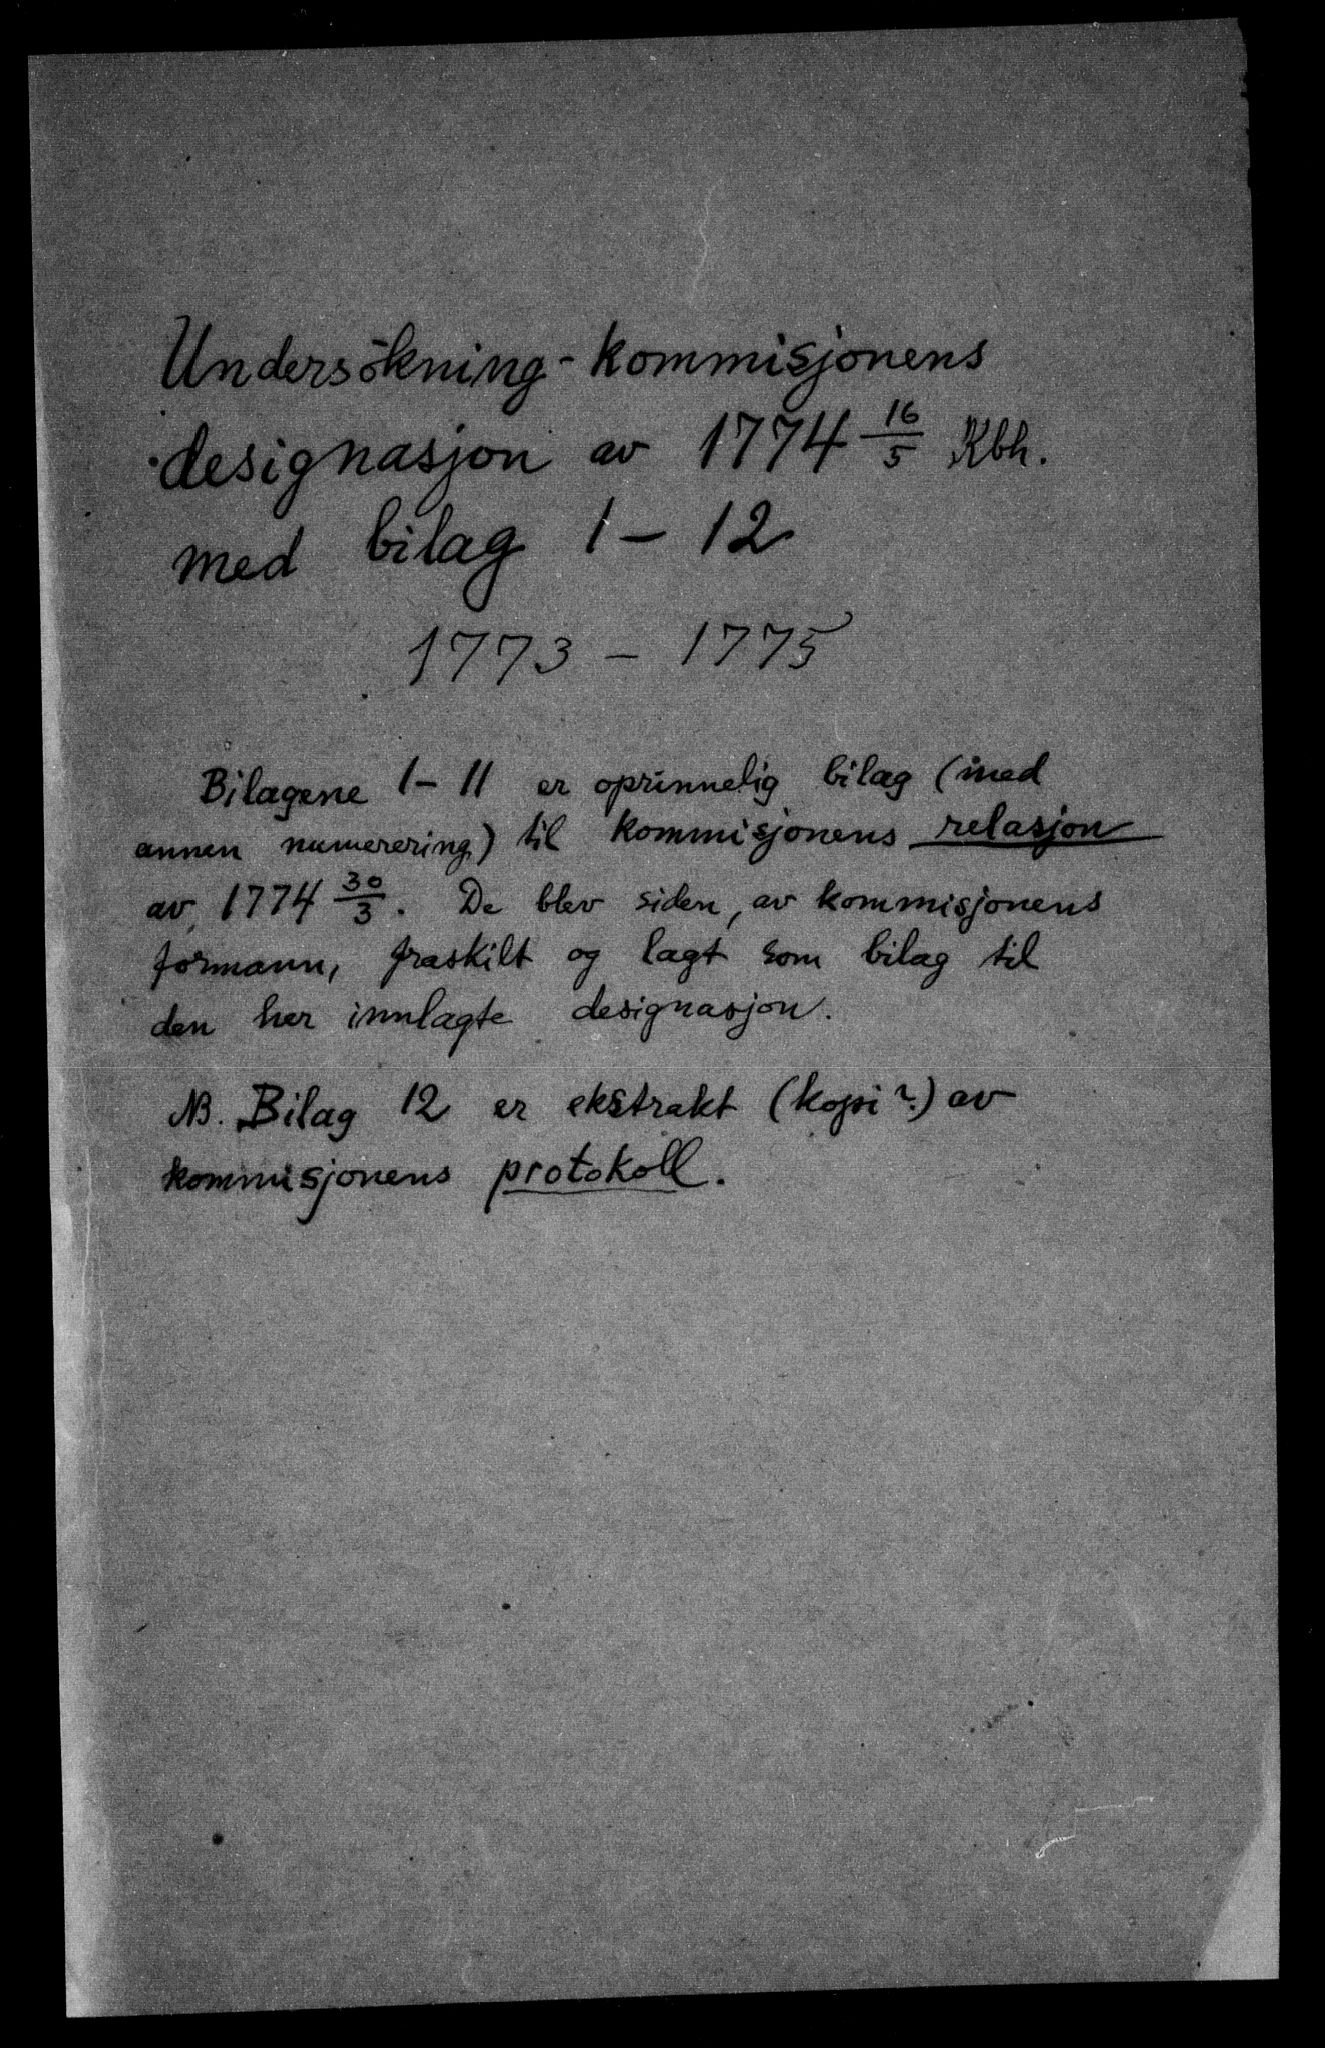 Undersökning-kommisjonens
designasjon av 1774 16/5 Kbh.
med bilag 1-12
1773 - 1775
Bilagene 1-11 er oprinnelig bilag (med
annen numerering) til kommisjonens relasjon
av 1774 30/3. De blev siden, av kommisjonens
formann, fraskilt og lagt som bilag til
den her innlagte designasjon.
NB. Bilag 12 er ekstrakt (kopi?) av
kommisjonens protokoll.